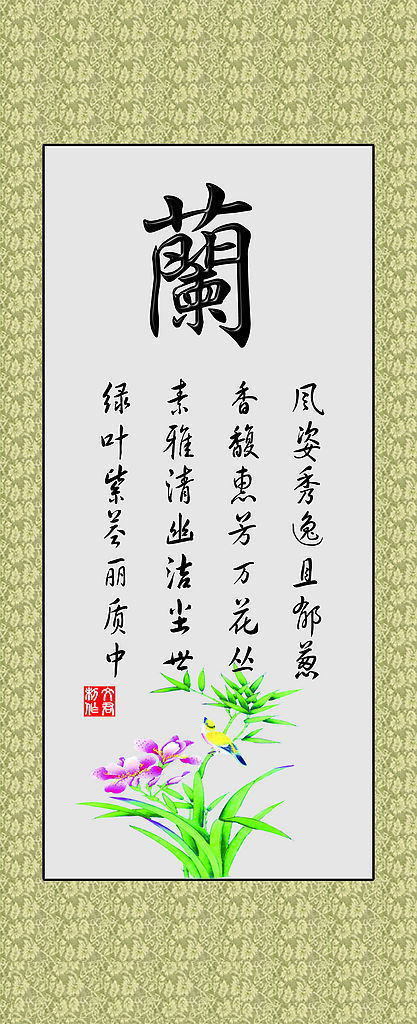 蘭
风姿秀逸且郁葱
香馥惠芳万花丛
素雅清幽洁尘世
绿叶紫茎丽质中
文君
制作